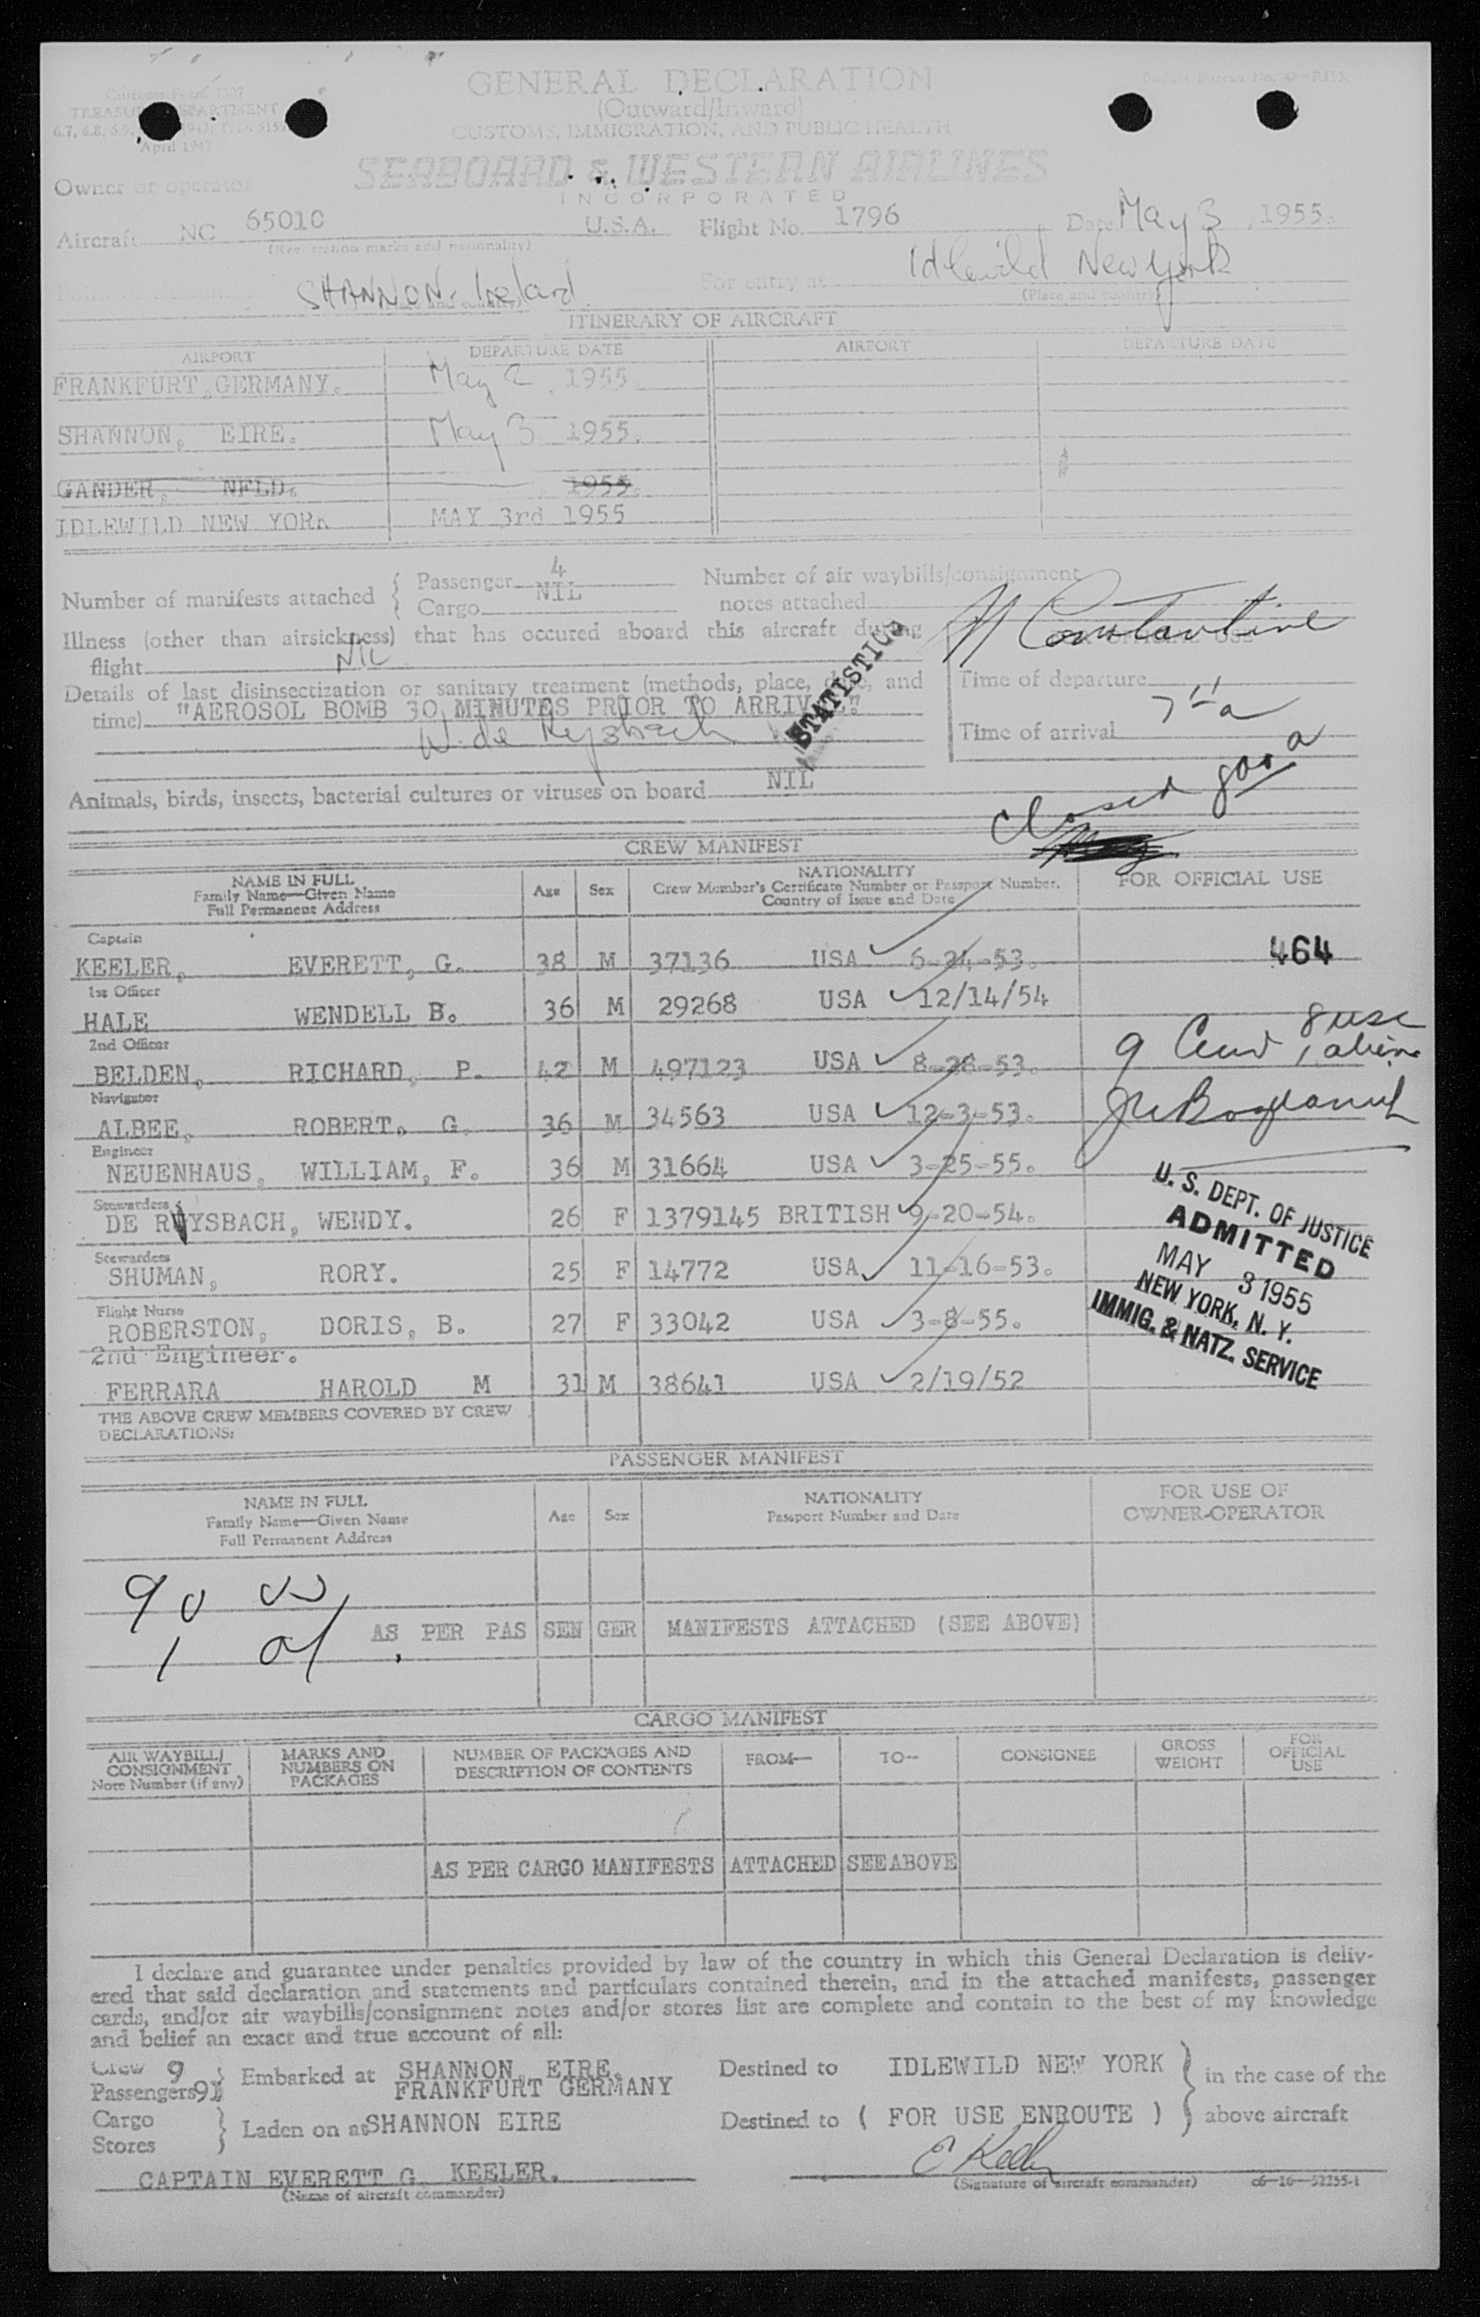 GENERAL DECLARATION
(Outward/Inward)
CUSTOMS, IMMIGRATION, AND PUBLIC HEALTH
TREASURY DEPARTMENT
April 1947
SEABOARD & WESTERN AIRLINES
INCORPORATED
Owner or operator
Aircraft NC 6501C U.S.A. Flight No. 1796 Date May 3, 1955.
(Registration marks and nationality)
SHANNON - Ireland For entry at Idlewild New York
(Place and country)
ITINERARY OF AIRCRAFT
AIRPORT DEPARTURE DATE AIRPORT DEPARTURE DATE
FRANKFURT, GERMANY. May 2, 1955
SHANNON, EIRE. May 3 1955.
GANDER, NFLD. 1955.
IDLEWILD NEW YORK MAY 3rd 1955
Number of manifests attached { Passenger 4
Cargo NIL
Number of air waybills/consignment
notes attached
Illness (other than airsickness) that has occured aboard this aircraft during
flight NIL
N Constantine
Details of last disinsectization or sanitary treatment (methods, place, date, and
time) "AEROSOL BOMB 30 MINUTES PRIOR TO ARRIVAL."
W. de Ruysbach
STATISTICS
Time of departure
Time of arrival
Animals, birds, insects, bacterial cultures or viruses on board NIL
Closed 800 a
CREW MANIFEST
NAME IN FULL
Family Name—Given Name
Full Permanent Address
Age Sex
NATIONALITY
Crew Member's Certificate Number or Passport Number.
Country of Issue and Date
FOR OFFICIAL USE
Captain
KEELER, EVERETT, G. 38 M 37136 USA 6-24-53. 464
1st Officer
HALE WENDELL B. 36 M 29268 USA 12/14/54
2nd Officer
BELDEN, RICHARD, P. 42 M 497123 USA 8-28-53.
9 Crew 8 usc
1 alien
Navigator
ALBEE, ROBERT, G. 36 M 34563 USA 12-3-53.
Engineer
NEUENHAUS, WILLIAM, F. 36 M 31664 USA 3-25-55.
Stewardess
DE RUYSBACH, WENDY. 26 F 1379145 BRITISH 9-20-54.
Stewardess
SHUMAN, RORY. 25 F 14772 USA 11-16-53.
Flight Nurse
ROBERSTON, DORIS, B. 27 F 33042 USA 3-8-55.
2nd Engineer.
FERRARA HAROLD M 31 M 38641 USA 2/19/52
U. S. DEPT. OF JUSTICE
ADMITTED
MAY 3 1955
NEW YORK, N. Y.
IMMIG. & NATZ. SERVICE
THE ABOVE CREW MEMBERS COVERED BY CREW
DECLARATIONS:
PASSENGER MANIFEST
NAME IN FULL
Family Name—Given Name
Full Permanent Address
Age Sex
NATIONALITY
Passport Number and Date
FOR USE OF
OWNER-OPERATOR
90
1
AS PER PASSENGER MANIFESTS ATTACHED (SEE ABOVE)
CARGO MANIFEST
AIR WAYBILL/
CONSIGNMENT
Note Number (if any)
MARKS AND
NUMBERS ON
PACKAGES
NUMBER OF PACKAGES AND
DESCRIPTION OF CONTENTS
FROM— TO— CONSIGNEE
GROSS
WEIGHT
FOR
OFFICIAL
USE
AS PER CARGO MANIFESTS ATTACHED SEE ABOVE
I declare and guarantee under penalties provided by law of the country in which this General Declaration is deliv-
ered that said declaration and statements and particulars contained therein, and in the attached manifests, passenger
cards, and/or air waybills/consignment notes and/or stores list are complete and contain to the best of my knowledge
and belief an exact and true account of all:
Crew 9
Passengers 91 } Embarked at SHANNON, EIRE.
FRANKFURT GERMANY
Destined to IDLEWILD NEW YORK } in the case of the
Cargo
Stores } Laden on at SHANNON EIRE Destined to ( FOR USE ENROUTE ) } above aircraft
CAPTAIN EVERETT G. KEELER. E Keeler
(Name of aircraft commander) (Signature of aircraft commander) c6—16—52255-1